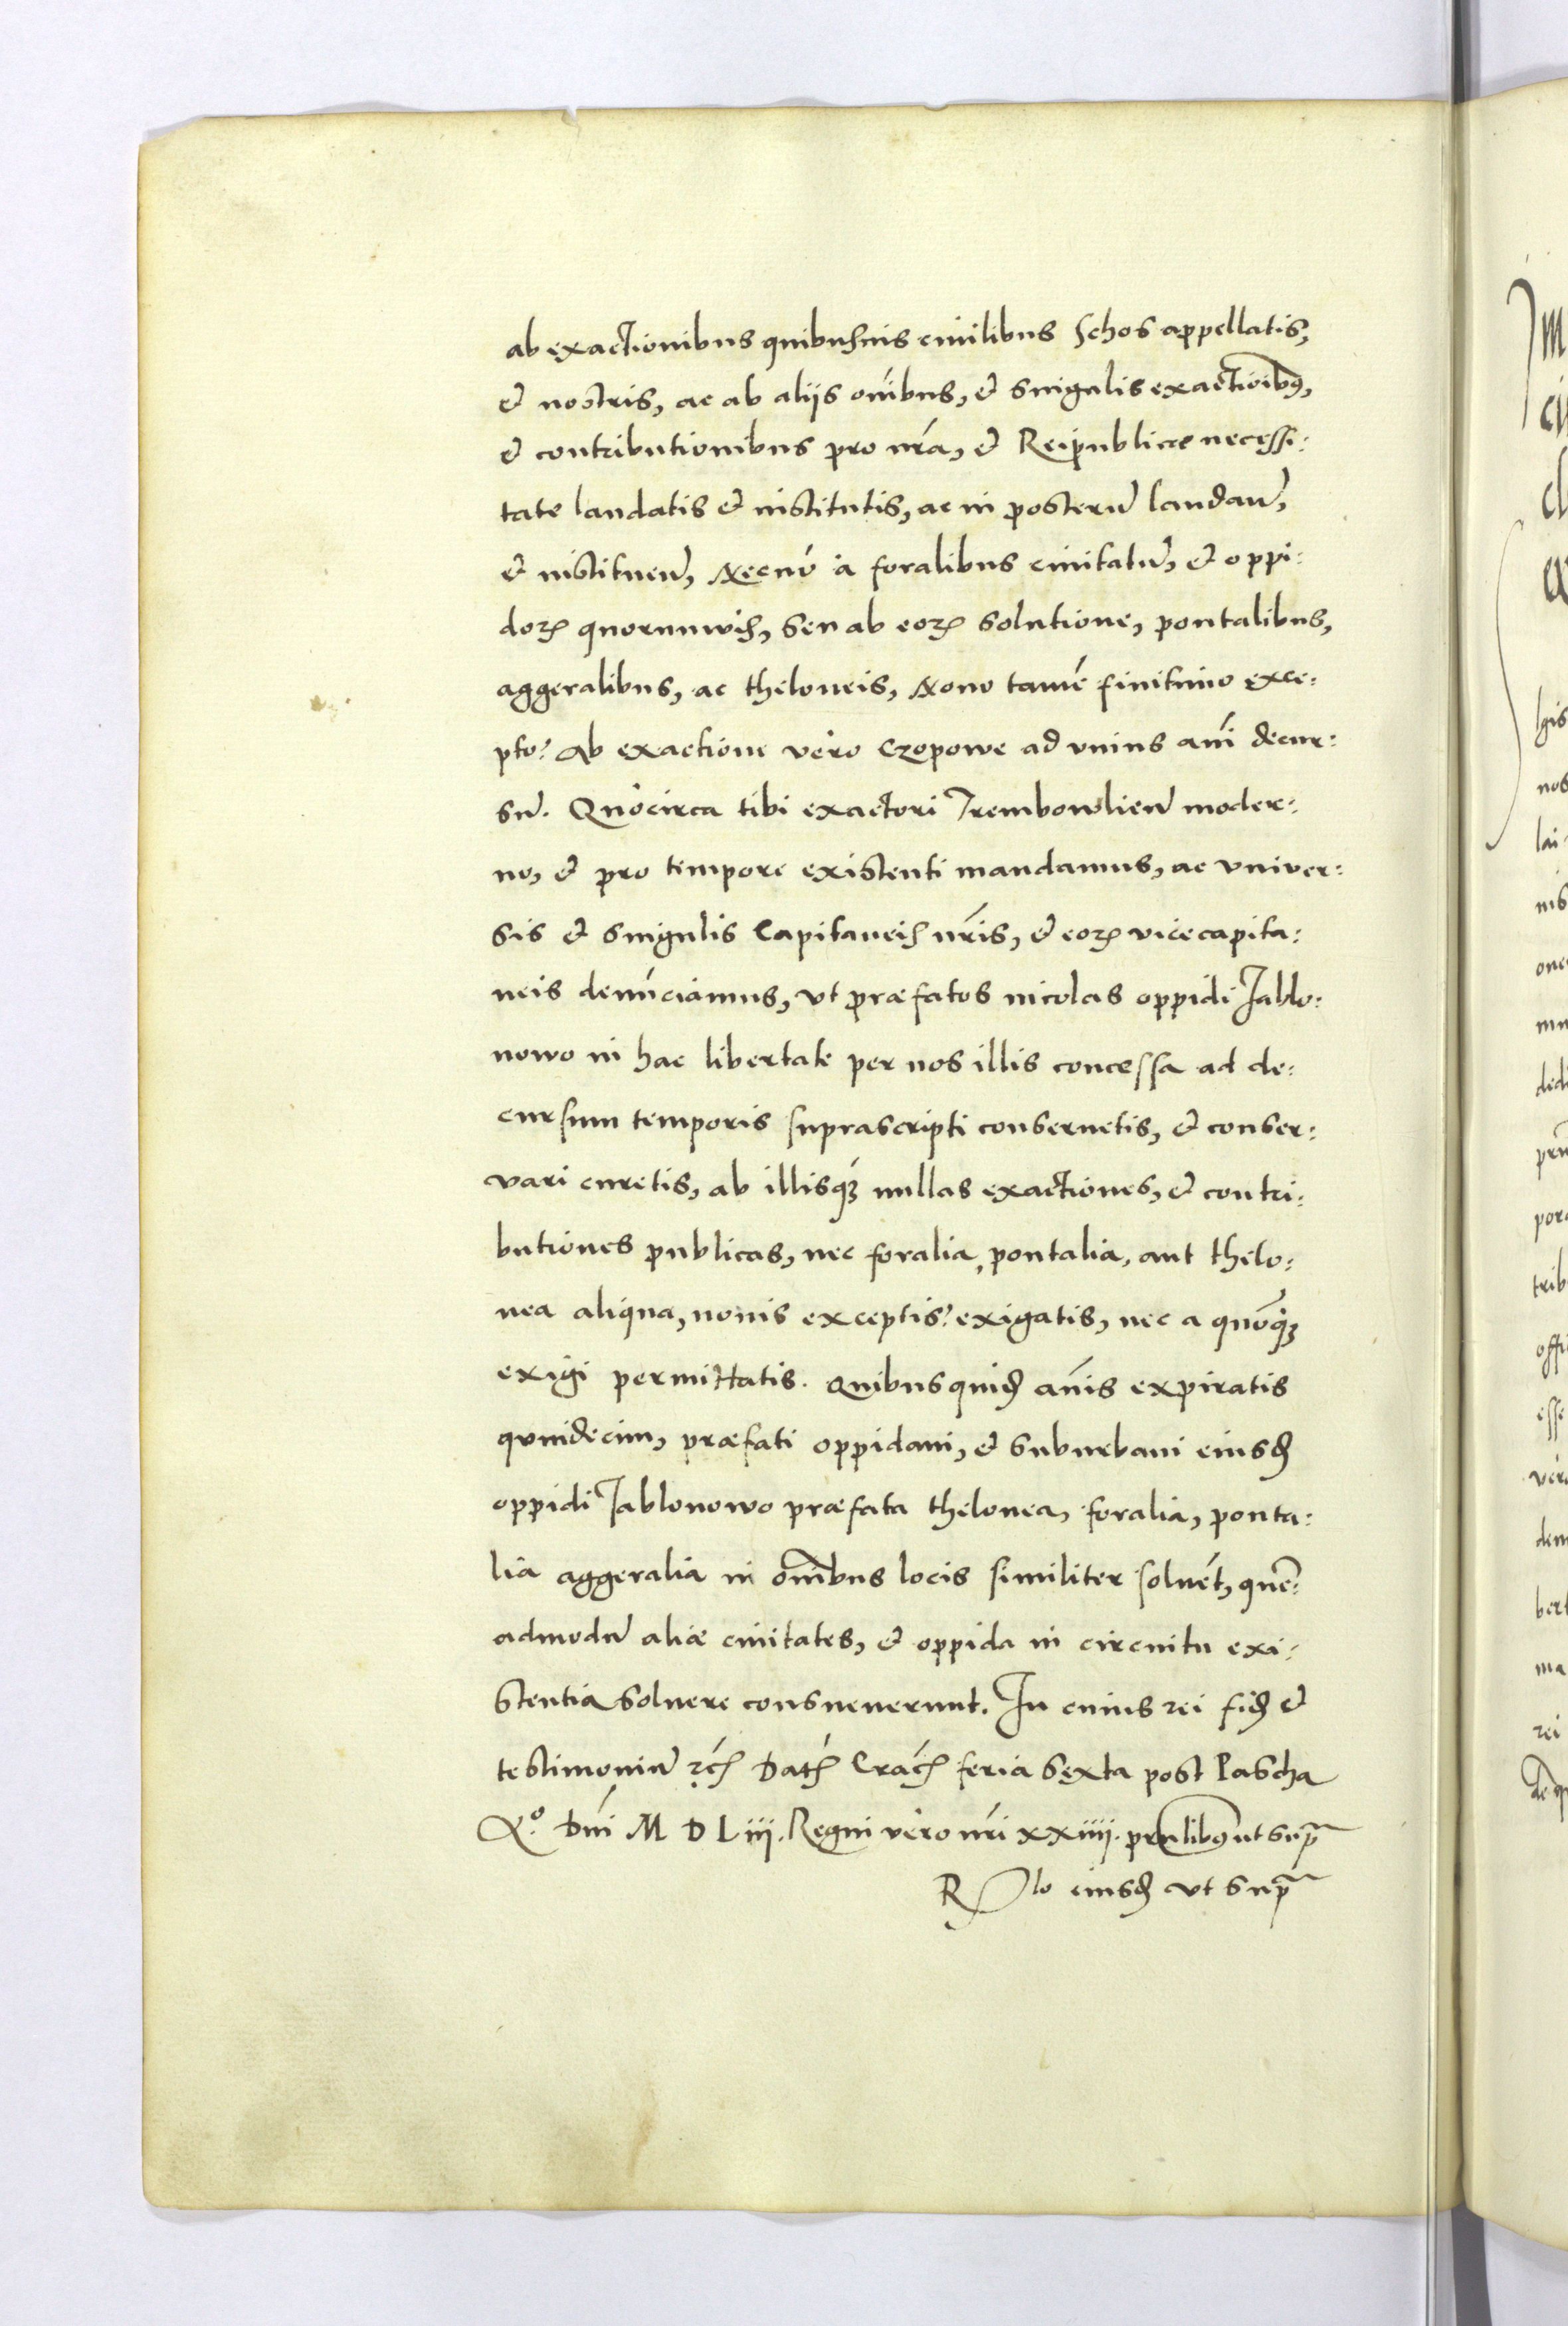 ab exactionibus quibusvis civilibus schos appellatis,
et nostris, ac ab aliis oı̃bus, et singulis exactioı̃bꝫ,
et contributionibus pro nr̃a, et Reipublicæ necessi:
tate laudatis et institutis, ac in posterũ laudañ,
et instituen̄, Necnõ à foralibus civitatũ, et oppi:
doꝝ quorumvis, seu ab eoꝝ solutione, pontalibus,
aggeralibus, ac theloneis, Novo tamẽ finitimo exce:
pto: Ab exactione vero Czopowe ad unius añi decur:
sũ. Quocirca tibi exactori Trembowlień moder:
no, et pro tempore existenti mandamus, ac univer:
sis et singulis Capitaneis nr̃is, et eoꝝ vicecapita:
neis denũciamus, ut præfatos incolas oppidi Jablo:
nowo in hac libertate per nos illis concessa ad de:
cursum temporis suprascripti conservetis, et conser:
vari curetis, ab illisqꝫ nullas exactiones, et contri:
butiones publicas, nec foralia, pontalia, aut thelo:
nea aliqua, novis exceptis: exigatis, nec a quoqꝫ
exigi permittatis. Quibusquid̃ añis expiratis
quindecim, præfati oppidani, et suburbani eiusd̃
oppidi Jablonowo præfata thelonea, foralia, ponta:
lia aggeralia in om̃ibus locis similiter solvẽt, quẽ:
admodũ aliæ civitates, et oppida in circuitu exi:
stentia solvere consueverunt. In cuius rei fid̃ et
testimoniũ ꝛc̃ Dat̃ Crac̃ feria sexta post Pascha
Aº. Dñi M D L iii. Regni vero nr̃i xxiiii. prñtibꝫ ut supr̃
Rlo eiusd̃ ut supr̃